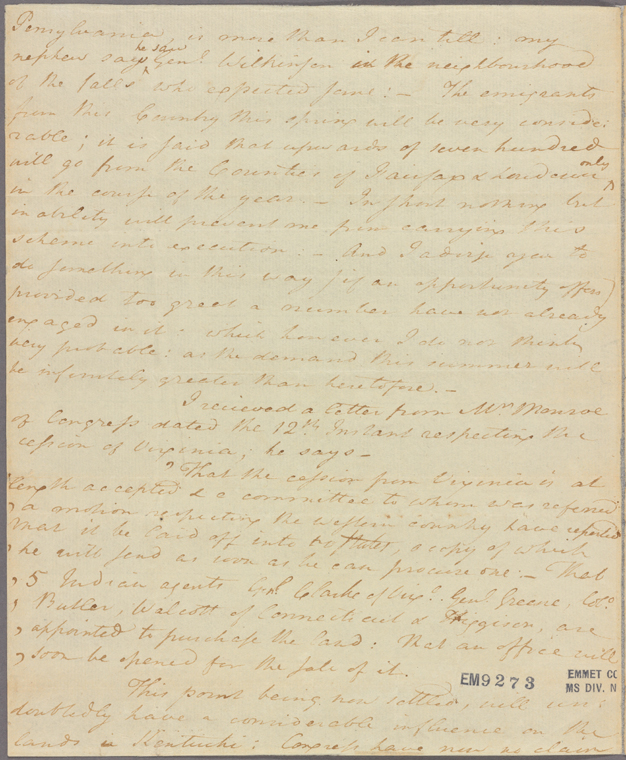 Pensylvania, is more than I can tell: my
nephew says he saw Genl. Wilkinson in the neighbourhood
of the falls who expected some: – The emigrants
from this Country this spring will be very conside:
rable; it is said that upwards of seven hundred
will go from the Counties of Fairfax & Loudoun only
in the course of the year. – In short nothing but
inability will prevent me from carrying this
scheme into execution: – And I advise you to
do something in this way (if an opportunity offers)
provided too great a number have not already
engaged in it – which however I do not think
very probable: as the demand this summer will
be infinitely greater than heretofore. –
I recieved a letter from Mr. Monroe
of Congress dated the 12th. Instant respecting the
cession of Virginia; he says –
"That the cession from Virginia is at
length accepted & a committee to whom was referred
, a motion respecting the western country have reported
that it be laid off into states, a copy of which
, he will send as soon as he can procure one. – That
, 5 Indian agents Genl. Clarke of Virga. Genl. Greene, Colo.
, Butler, Walcott of Connecticut & Higgison, are
, appointed to purchase the land: that an office will
, soon be opened for the sale of it.
This point being now settled, will un:
doubtedly have a considerable influence on the
lands in Kentucki: Congress have now no claim
EM9273
EMMET CO
MS DIV. N